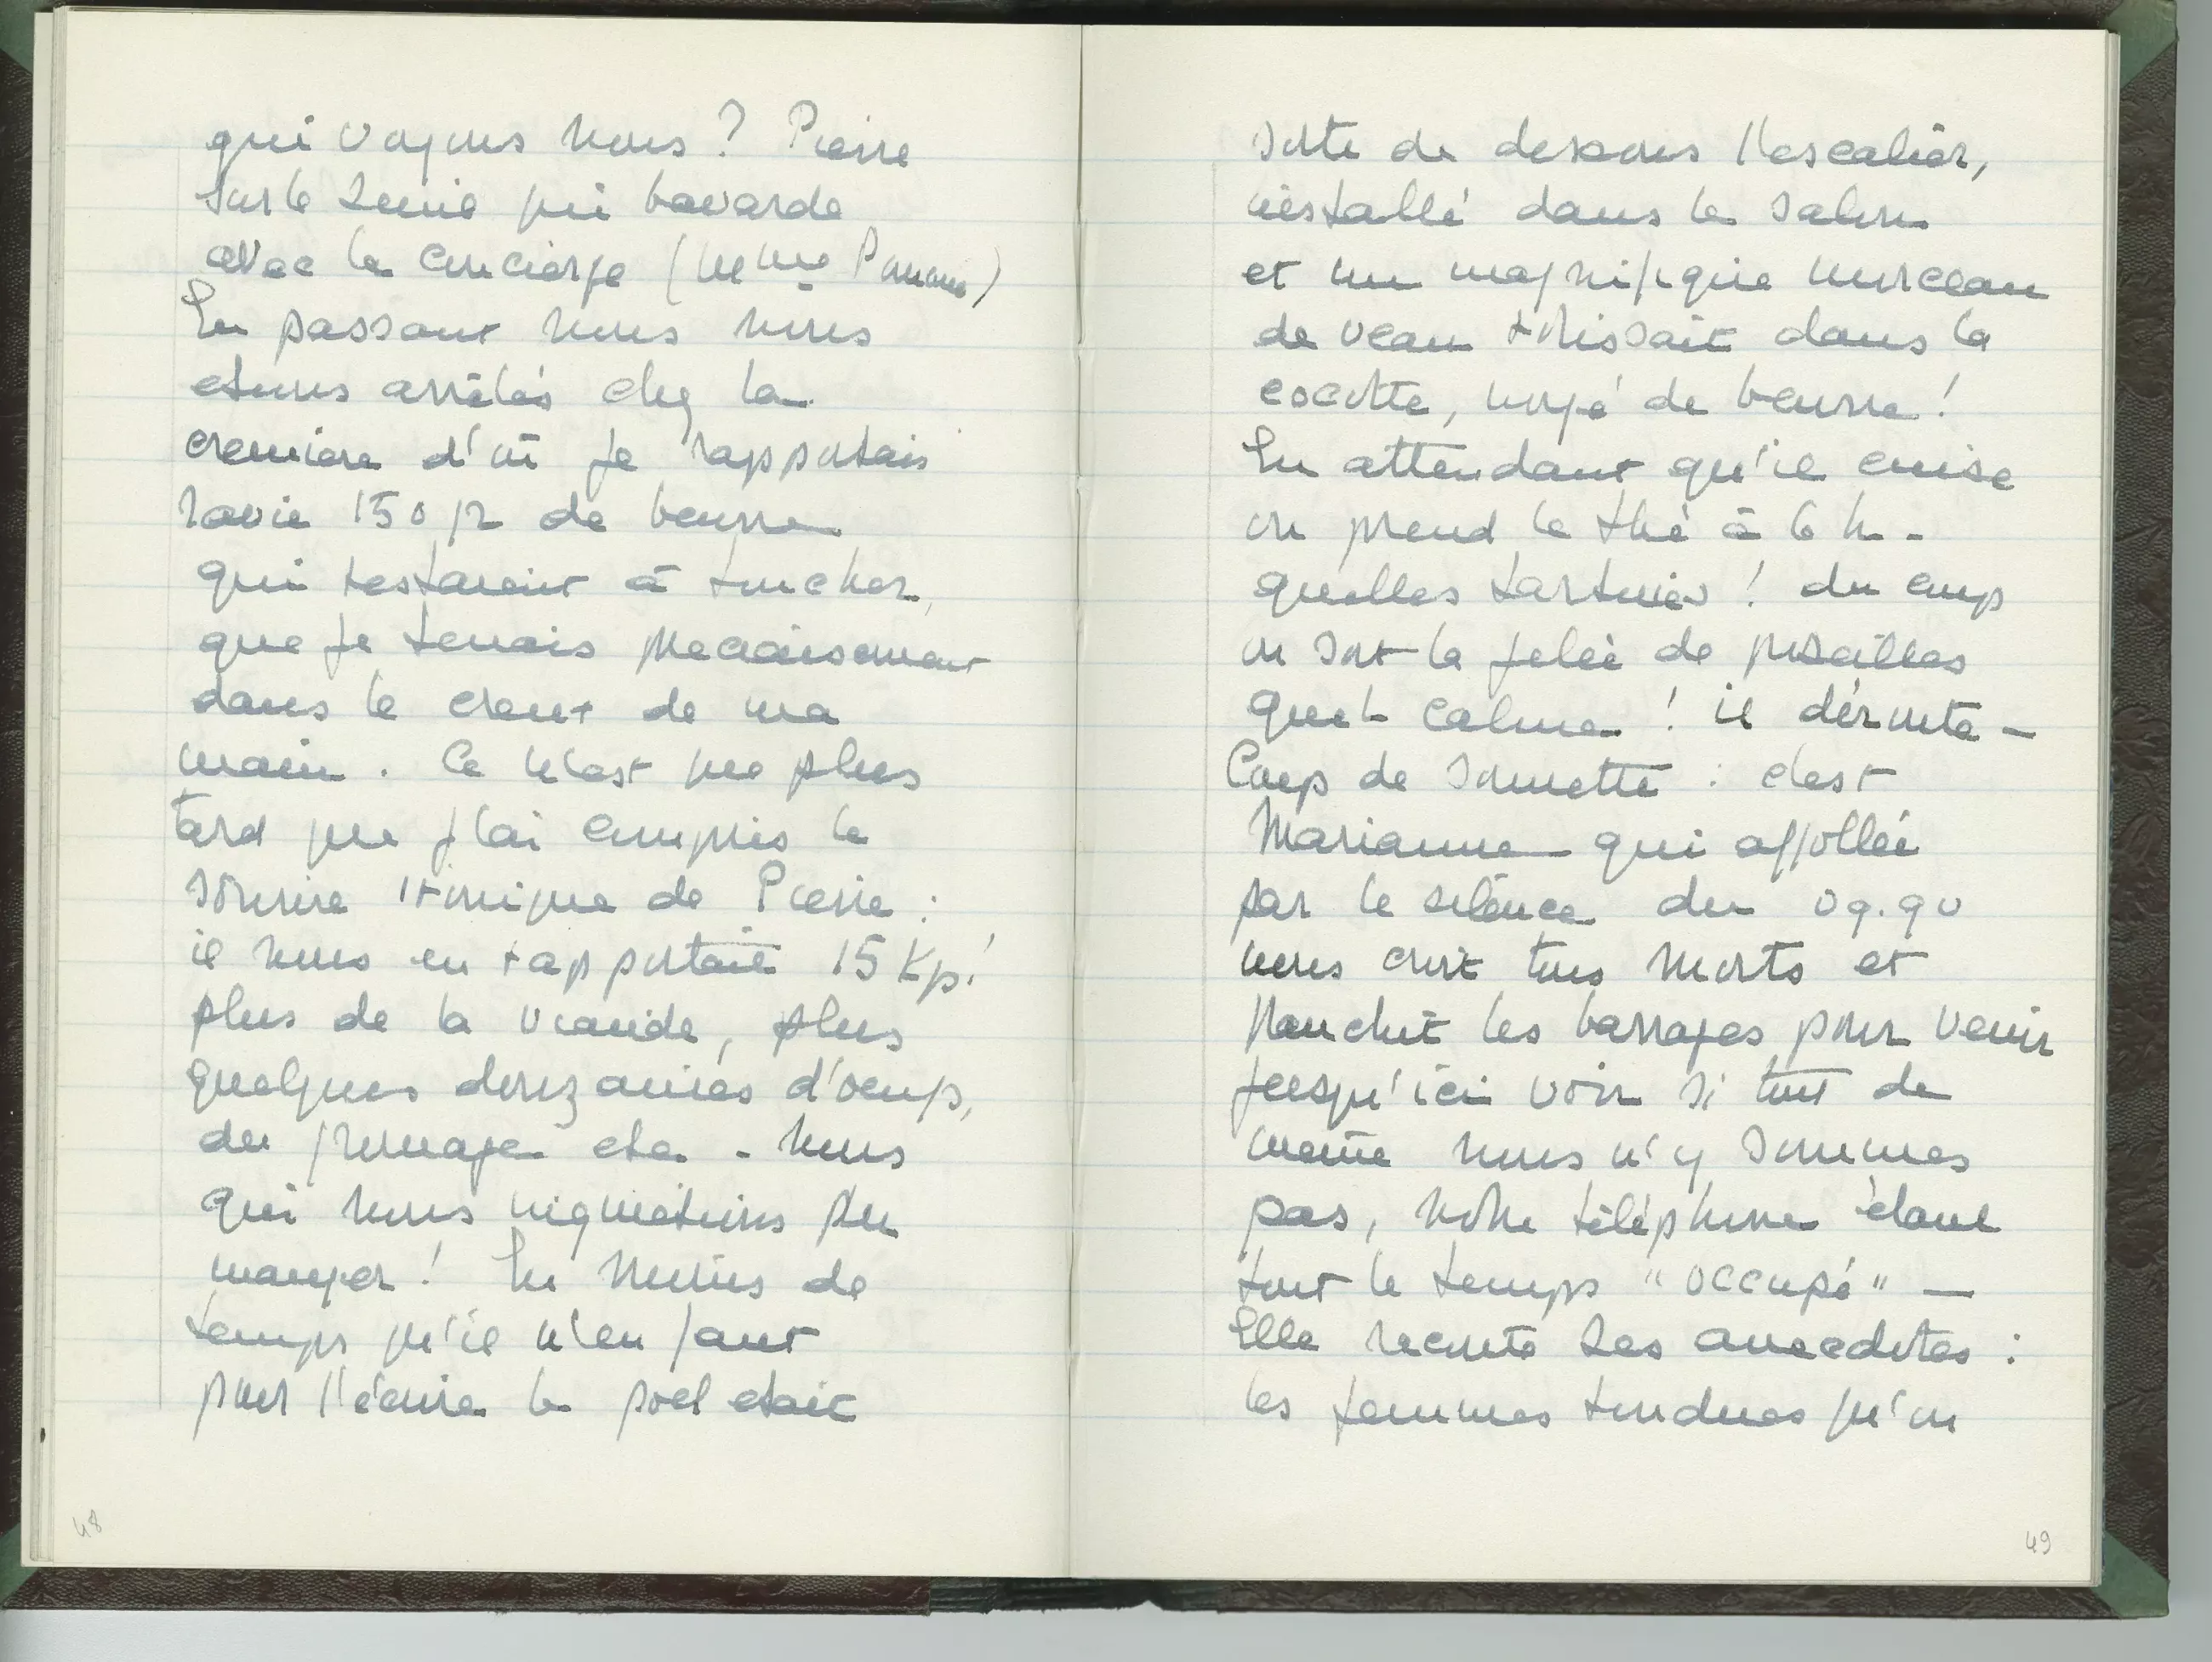 qui voyons nous ? Pierre
sur le seuil qui bavarde
avec la concierge (Mme
En passant nous nous
etions arrêtés chez la
cremière d'où je rapportais
ravie 150 gr de beurre
qui restaient à toucher,
que je tenais précieusement
dans le creux de ma
main. Ce n'est que plus
tard que j'ai compris le
sourire ironique de Pierre :
il nous en rapportait 15 Kg!
plus de la viande, plus
quelques douzaines d'oeufs,
du fromage etc - nous
qui nous inquiétions du
manger ! En moins de
temps qu'il n'en faut
pour l'écrire le poel etait
48
sorti de dessous l'escalier,
installé dans le salon
et un magnifique morceau
de veau rotissait dans la
cocotte, noyé de beurre !
En attendant qu'il cuise
on prend le thé à 6 h -
quelles tartines ! du coup
on sort la gelée de groseilles
Quel calme ! il déroute -
Coup de sonnette : c'est
Marianne qui affollée
par le silence du
nous croit tous morts et
franchit les barrages pour venir
jusqu'ici voir si tout de
même nous n'y sommes
pas, notre téléphone étant
tout le temps "occupé" -
Elle raconte ses anecdotes :
les femmes tondues qu'on
49